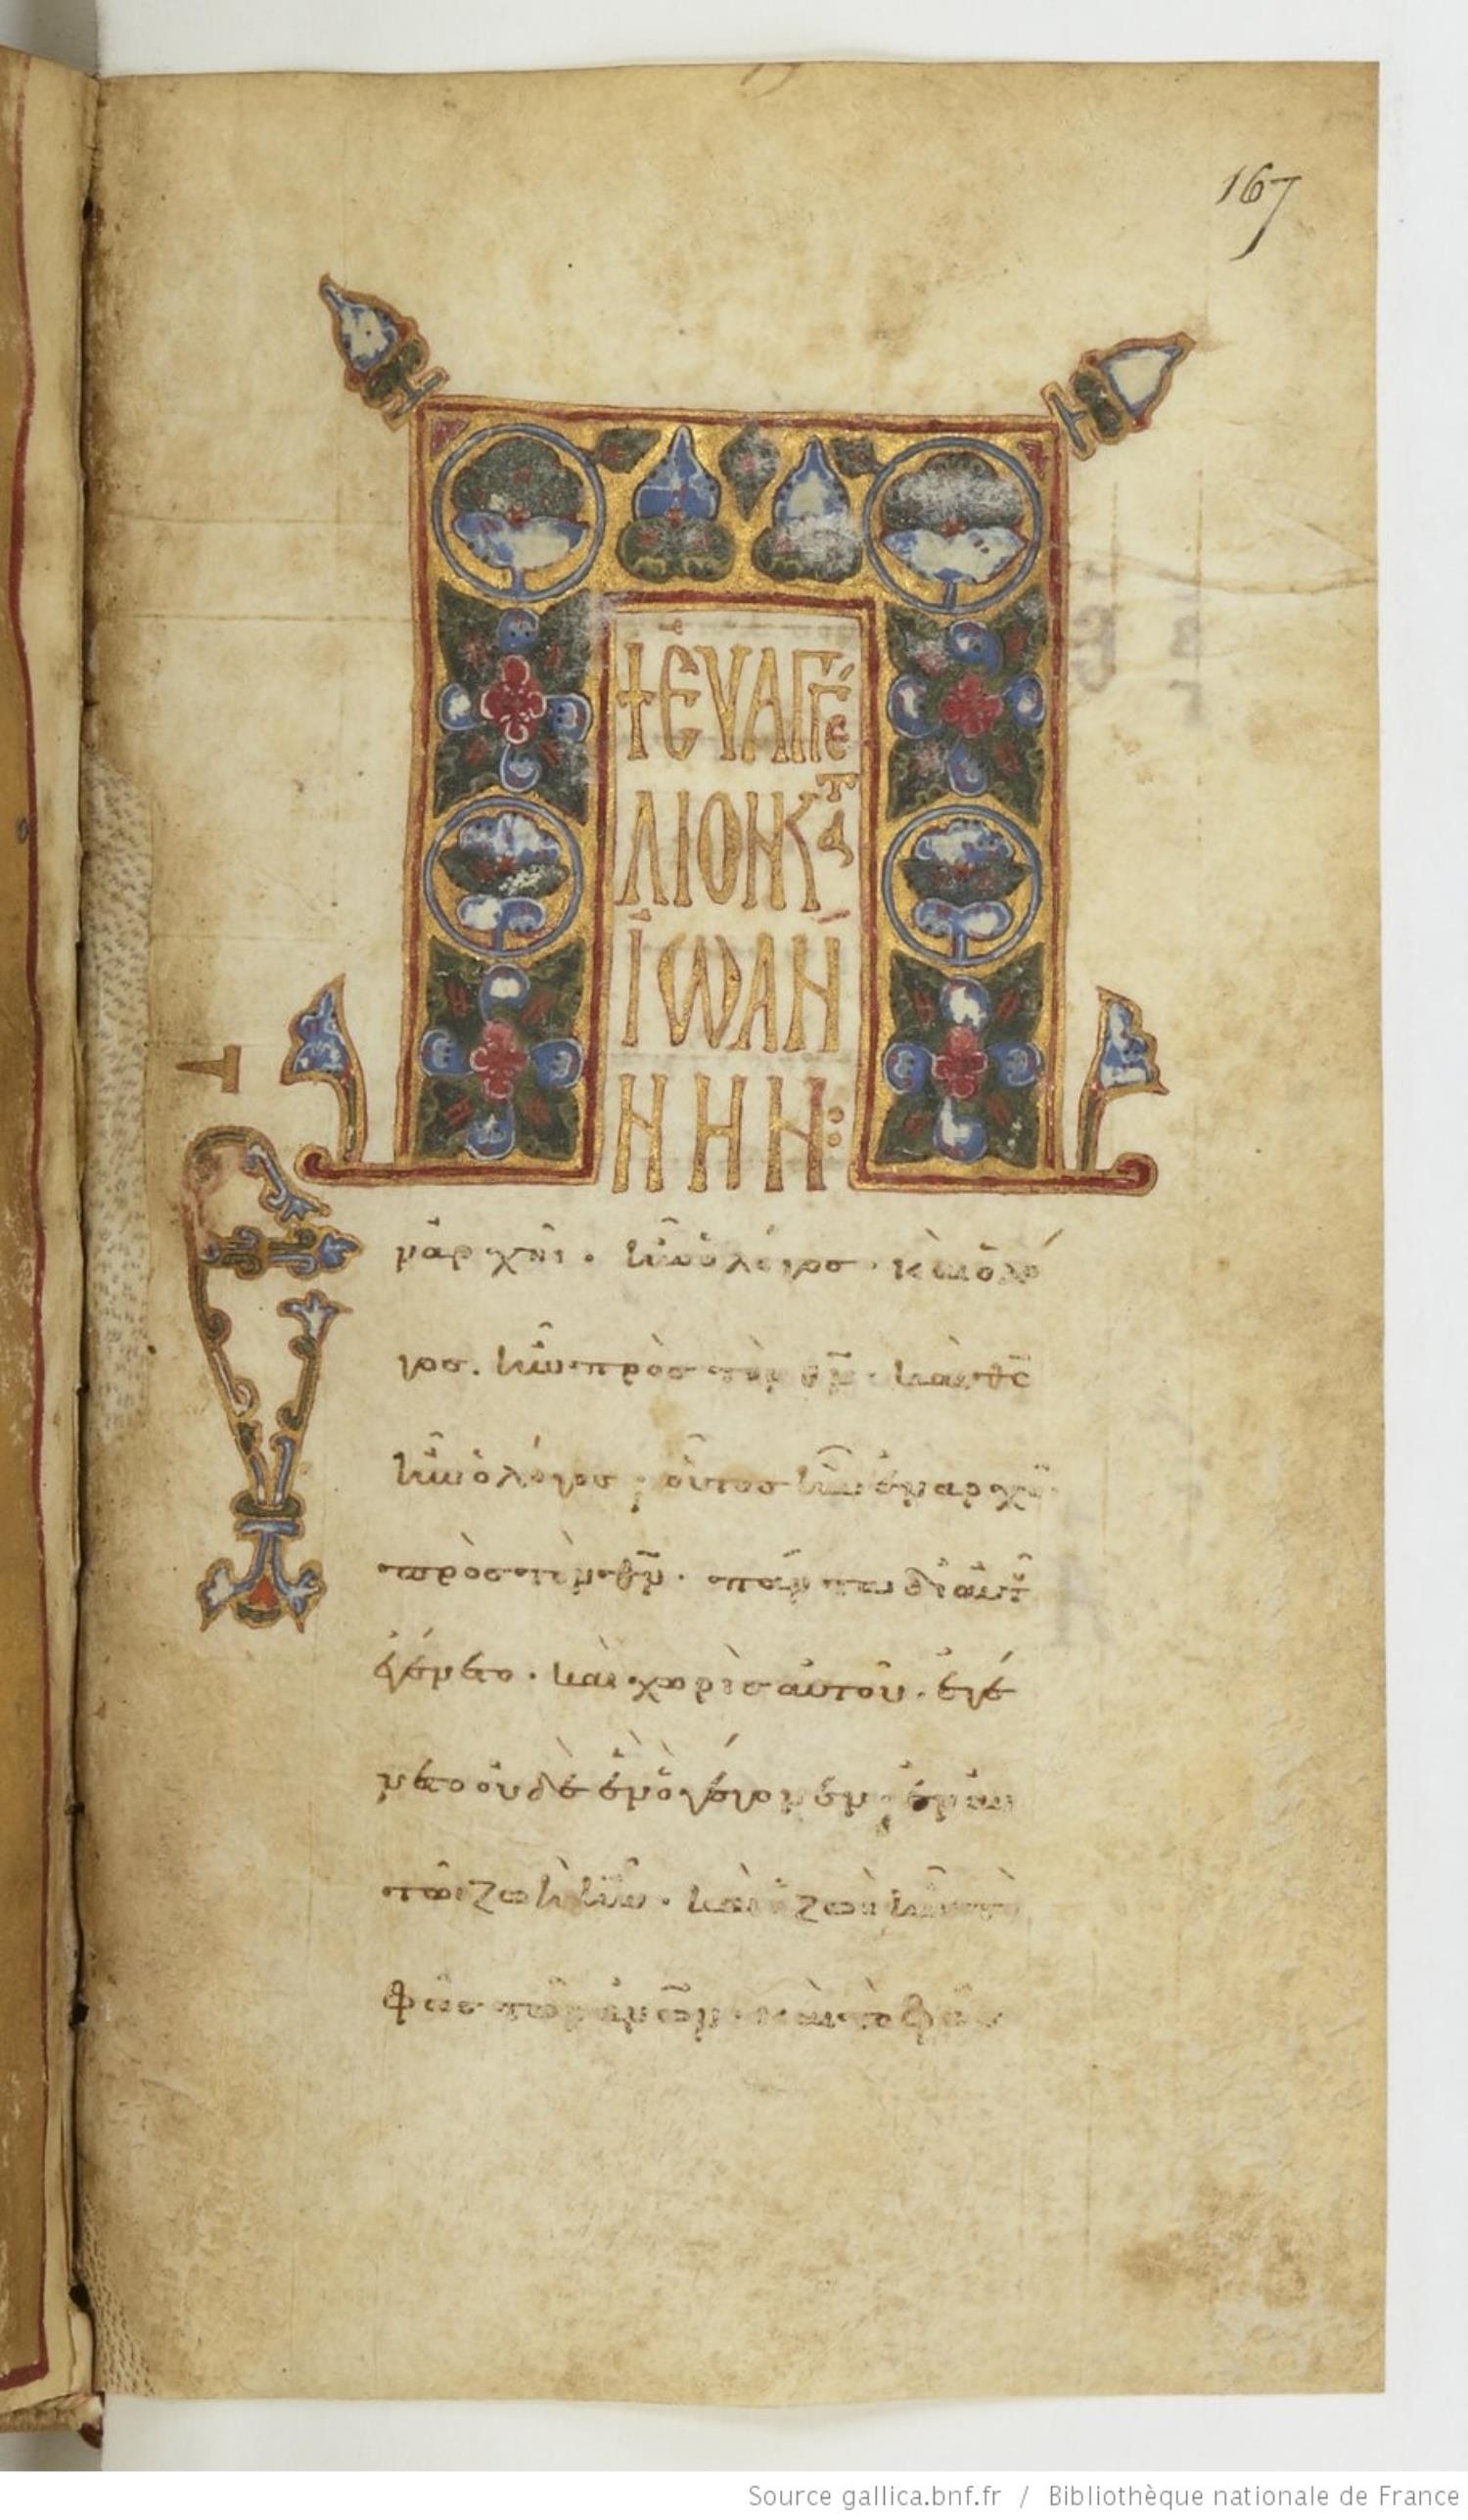 167
+ ἘΥΑΓΓΕ
ΛΙΟΝ ΚΑΤΑ
ἸΩΑΝ
ΝΗΝ:
Ἐ
ν ἀρχῆι· ἦν ὁ λόγος· καὶ ὁ λό
γος. ἦν πρὸς τὸν θν̅· καὶ θς̅
ἦν ὁ λόγος· οὗτος ἦν ἐν ἀρχῆ
πρὸς τὸν θν̅· πάντα δι' αὐτοῦ
ἐγένετο· καὶ χωρὶς αὐτοῦ· ἐγέ
νετο οὐδὲ ἓν ὃ γέγονεν· ἐν αὐ
τῶι ζωὴ ἦν· καὶ ἡ ζωὴ ἦν τὸ
φῶς τῶν ἀνῶν̅· καὶ τὸ φῶς
Source gallica.bnf.fr / Bibliothèque nationale de France